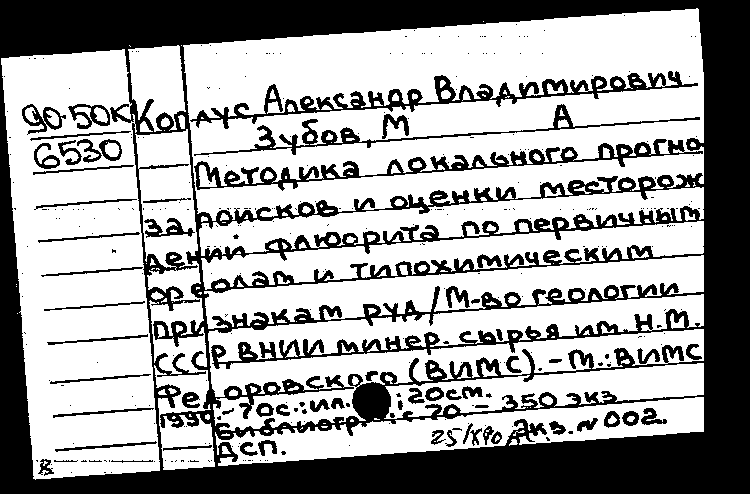 90-50К
6530
Коплус, Александр Владимирович
Зубов, М А
Методика локального прогно
за, поисков и оценки месторож
дений флюорита по первичным
ореолам и типохимическим
признакам руд/М-во геологии
СССР, ВНИИ минер. сырья им. Н.М.
Федоровского (ВИМС). – М.: ВИМС
1990. – 70 с.: ил. ; 20 см.
Библиогр.: с. 70 – 350 экз
ДСП. Экз. № 002.